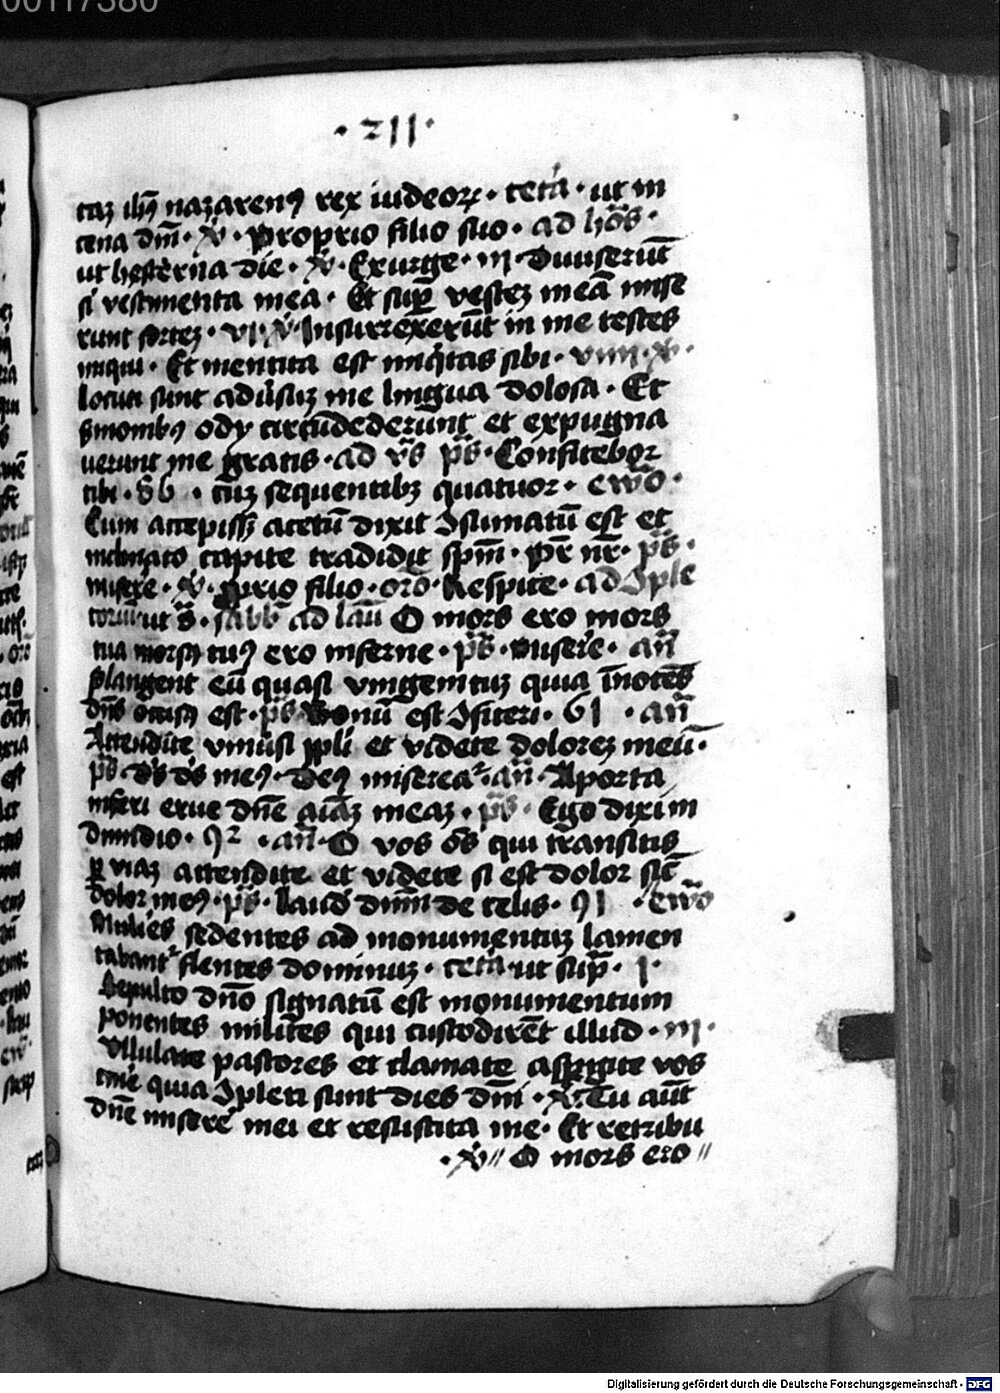 00117380
· 211 ·
taz ihs nazarenꝰ rex iudeoꝝ · cetã · ut in
cena dm̄ · v̇ · Proprio filio suo · ad hōs ·
ut hesterna die · v̇ · Exurge · iii · Diuiserūt
si vestimenta mea · Et suꝑ vestez meā mise
runt sortez · vi · v̇ · Insurrexerūt in me testes
iniqui · Et mentita est iniq̇tas sibi · viiii · v̇ ·
locuti sunt aduˀsuz me lingua dolosa · Et
sˀmonibꝰ ody circūdederunt et expugna
uerunt me gratis · ad vˀs ps̄ · Confitebor
tibi · 86 · cuz sequentibz quatuor · ewō ·
Cum accepissz acetū dixit Ꝯsumatū est et
inclinato capite tradidit spm̄ · pr̄ nr̄ · ps̄ ·
misere · v̇ · ꝓprio filio · orō · Respice · ad Ꝯple
toriū · ut sˀ · sabb̄ ad laū O mors ero mors
tua morsꝰ tuꝰ ero inferne · ps̄ · Misere · an̄
plangent eū quasi vnigenituz quia īnocēs
dn̄s occisꝰ est · ps̄ · Bonū est Ꝯfiteri · 61 · an̄
Attendite vniūsi ppl̄i et videte dolorez meū ·
ps̄ · ds̄ ds̄ meꝰ · Deꝰ misereaᵗ · an̄ · A porta
inferi erue dn̄e aīaz meaz · ps̄ · Ego dixi in
dimidio · 92 · an̄ · O vos ōs qui transitis
ꝑ viaz attendite et videte si est dolor sic̄
dolor meꝰ · ps̄ · Laud̄ dn̄m de celis · 91 · ewō
Mulies sedentes ad monumentuz lamen
tabantᵗ flentes dominuz · cetã · ut suꝑ · i ·
Sepulto dn̄o signatū est monumentum
ponentes milites qui custodirēt illud · iii ·
Vllulate pastores et clamate aspˀgite vos
cinē quia Ꝯpleti sunt dies dn̄i · v̇ · Tu aūt
dn̄e miserē mei et resuscita me · Et retribu
· v̇ // O mors ero //
Digitalisierung gefördert durch die Deutsche Forschungsgemeinschaft - DFG